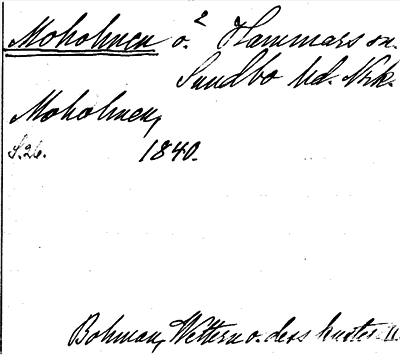 Moholmen ö. 2 Hammars sn.
Sundbo hd. Nrk.
Moholmen,
S. 26. 1840.
Bohman, Wettern o. dess kuster II.